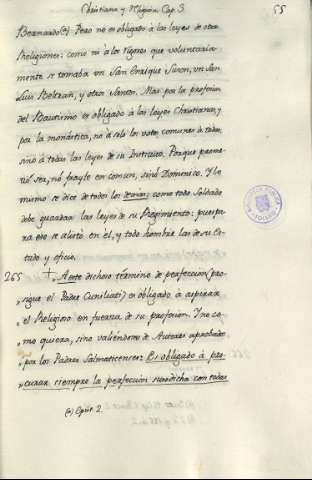 Christiana y Religiosa Cap. 3.
55
Bernardo (a) Pero no es obligado à las leyes de otras
Religiones: como ni à los rigores que voluntaria
mente se tomaba un San Enrique Suson, un San
Luis Beltran, y otros Santos. Mas por la profesion
del Bautismo es obligado à las leyes Christianas, y
por la monàstica, no à solo los votos comunes à todos,
sino à todas las leyes de su Instituto. Porque prome
tiò ser, nò frayle en comun, sinò Dominico. Y lo
mismo se dice de todos los demas: como todo Soldado
debe guardar las leyes de su Regimiento: pues pa
ra eso se alistò en el, y todo hombre las de su Es
tado y oficio.
265 A este dichoso tèrmino de perfeccion (pro
sigue el Padre Cuniliati) es obligado à aspirar
el Religioso en fuerza de su profesion. Y no co
mo quiera, sino valiendose de Autores aprobados
por los Padres Salmaticenses: Es obligado à pro
curar siempre la perfeccion susodicha con todas
(a) Epist. 2.